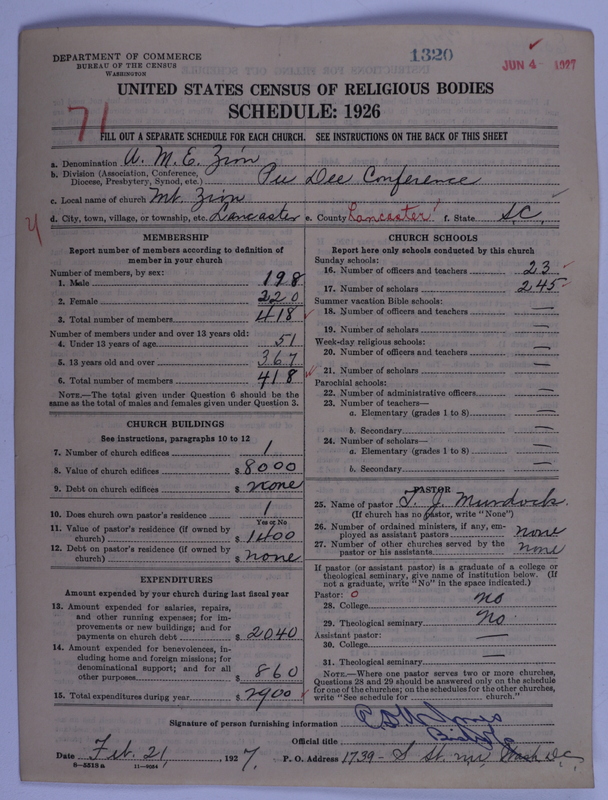 DEPARTMENT OF COMMERCE
BUREAU OF THE CENSUS
WASHINGTON
1320
JUN 4 1927
UNITED STATES CENSUS OF RELIGIOUS BODIES
SCHEDULE: 1926
71
FILL OUT A SEPARATE SCHEDULE FOR EACH CHURCH. SEE INSTRUCTIONS ON THE BACK OF THIS SHEET
a. Denomination A. M. E. Zion
b. Division (Association, Conference, Diocese, Presbytery, Synod, etc.) Pee Dee Conference
c. Local name of church Mt. Zion
d. City, town, village, or township, etc. Lancaster e. County Lancaster f. State S.C.
MEMBERSHIP
Report number of members according to definition of
member in your church
Number of members, by sex:
1. Male 198
2. Female 220
3. Total number of members 418
Number of members under and over 13 years old:
4. Under 13 years of age 51
5. 13 years old and over 367
6. Total number of members 418
NOTE.—The total given under Question 6 should be
same as the total of males and females given under Question 3.
CHURCH BUILDINGS
See instructions, paragraphs 10 to 12
7. Number of church edifices 1
8. Value of church edifices $ 8000
9. Debt on church edifices $ none
10. Does church own pastor's residence 1
Yes or No
11. Value of pastor's residence (if owned by
church) $ 1400
12. Debt on pastor's residence (if owned by
church) $ none
EXPENDITURES
Amount expended by your church during last fiscal year
13. Amount expended for salaries, repairs,
and other running expenses; for im-
provements or new buildings; and for
payments on church debt $ 2040
14. Amount expended for benevolences, in-
cluding home and foreign missions; for
denominational support; and for all
other purposes $ 860
15. Total expenditures during year $ 2900
CHURCH SCHOOLS
Report here only schools conducted by this church
Sunday schools:
16. Number of officers and teachers 23
17. Number of scholars 245
Summer vacation Bible schools:
18. Number of officers and teachers —
19. Number of scholars —
Week-day religious schools:
20. Number of officers and teachers —
21. Number of scholars —
Parochial schools:
22. Number of administrative officers —
23. Number of teachers—
a. Elementary (grades 1 to 8) —
b. Secondary —
24. Number of scholars—
a. Elementary (grades 1 to 8) —
b. Secondary —
PASTOR
25. Name of pastor T. J. Murdock
(If church has no pastor, write "None")
26. Number of ordained ministers, if any, em-
ployed as assistant pastors none
27. Number of other churches served by the
pastor or his assistants none
If pastor (or assistant pastor) is a graduate of a college or
theological seminary, give name of institution below. (If
not a graduate, write "No" in the space indicated.)
Pastor: O
28. College no
29. Theological seminary No
Assistant pastor:
30. College —
31. Theological seminary —
NOTE.—Where one pastor serves two or more churches,
Questions 28 and 29 should be answered only on the schedule
for one of the churches; on the schedules for the other churches,
write "See schedule for church."
Signature of person furnishing information Jones
Official title Bishop
Date Feb. 21, 1927. P. O. Address 1739- S St. NW, Wash D.C.
6—5318 a 11—9034